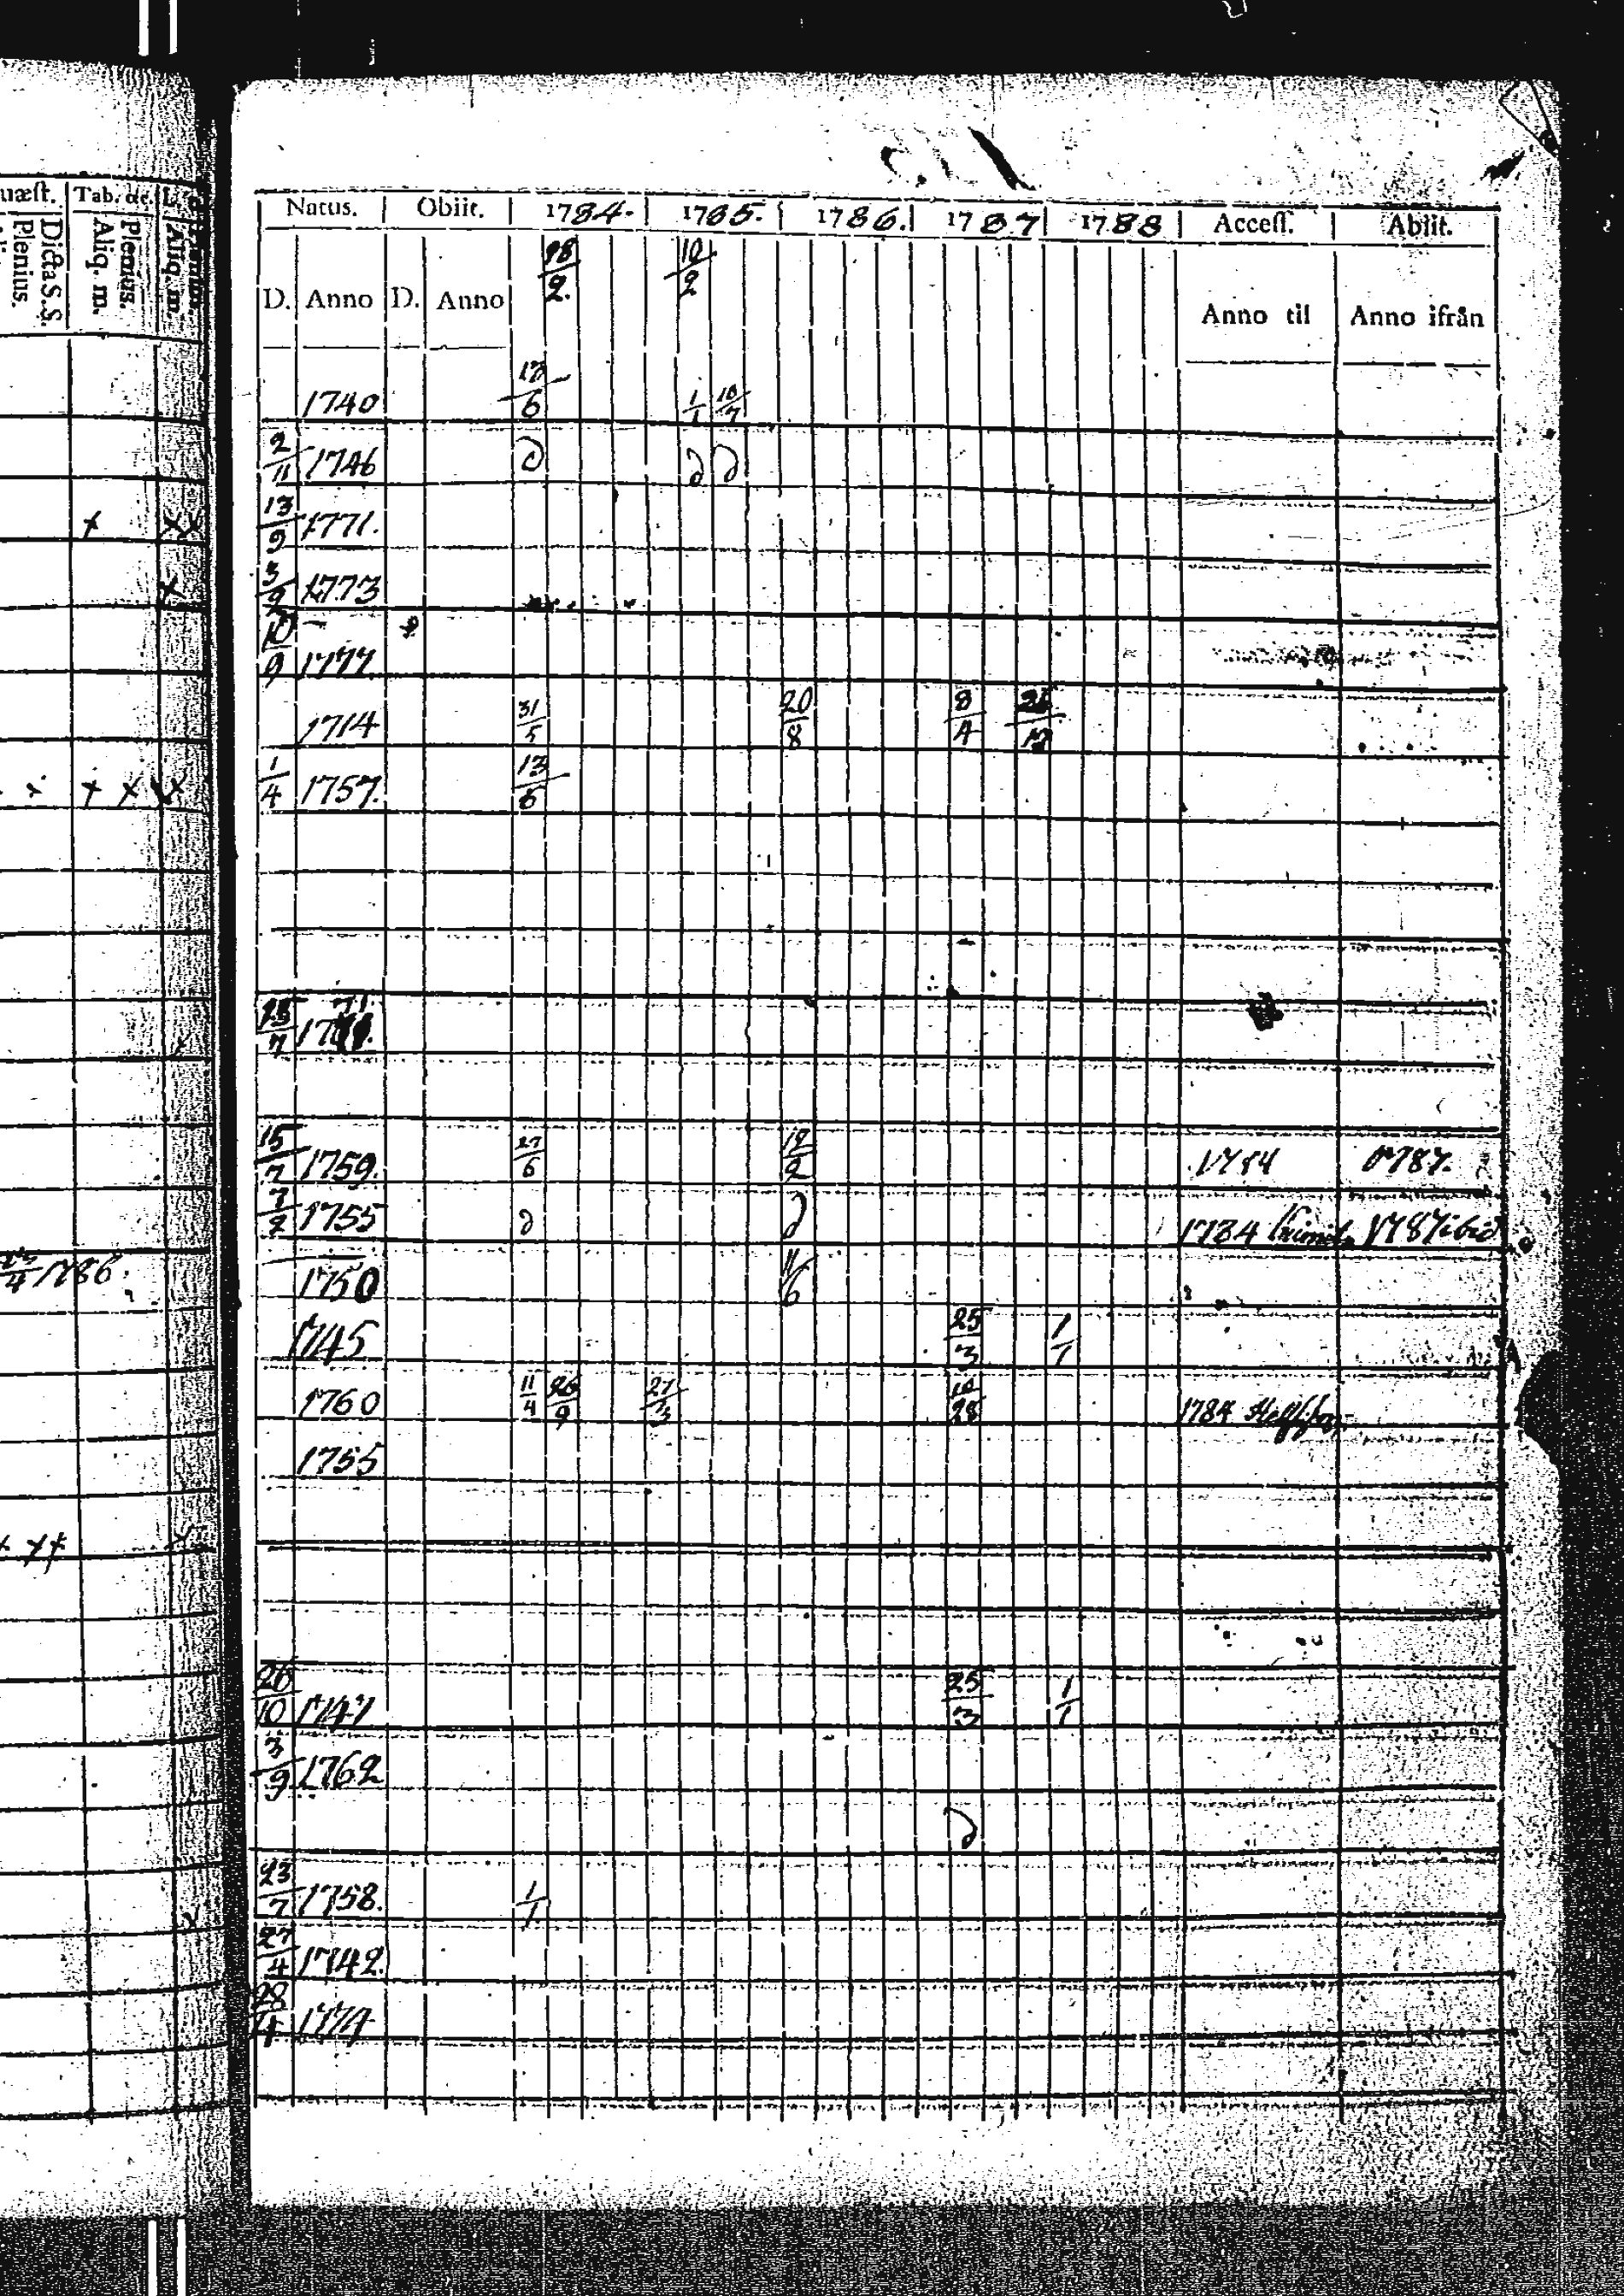 uæſt. Tab. &c.
Dicta S.S.
Plenius.
Plenius.
Aliq. m.
Aliq. m.
Natus. Obiit. 1784. 1785. 1786. 1787 1788 Acceſſ. Abiit.
D. Anno D. Anno 28/2. 10/2 Anno til Anno ifrån
1740 1/1 10/7
2/11 1746 d d d
13/9 1771.
3/9 1773
10/9 1777
1714 31/5 20/8 8/4
1/4 1757. 13/6
71.
15/7 1759. 27/6 12/2 1784 1787.
7/2 1755 d d 1784 1787 ibid
4 1786.
1750 11/6
1745 25/3 1/1
1760 11/4 26/9 27/3 1784
1755
26/10 1747 25/3 1/1
3/9 1762
d
23/7 1758. 1/1
27/4 1742.
28/4 1774